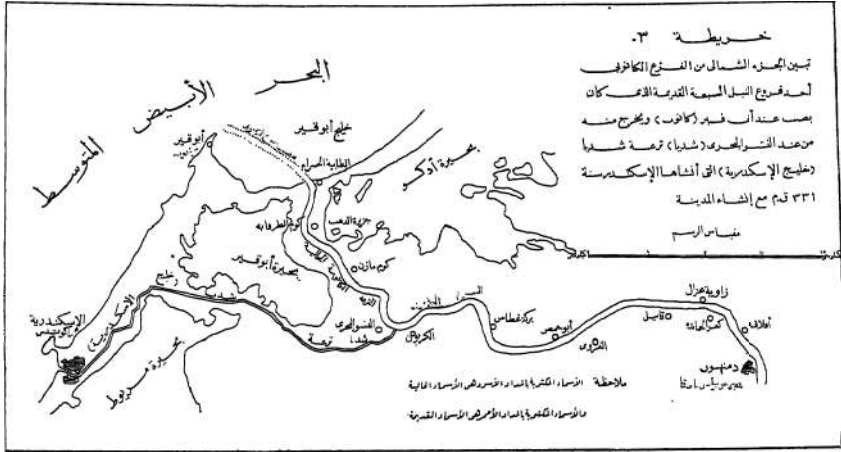 خريطة ٣.
تبين الجزء الشمالى من الفرع الكانوبى
أحد فروع النيل السبعة القديمة الذى كان
يصب عند أبى قير (كانوب) ويخرج منه
من عند النشو البحرى (شديا) ترعة شديا
(خليج الإسكندرية) التى أنشأها الإسكندر سنة
٣٣١ ق.م مع إنشاء المدينة
مقياس الرسم
البحر
الأبيض
المتوسط
خليج أبو قير
أبو قير
الطابية الحمراء
بحيرة أدكو
كوم الطرفايه
كوم مازن
بحيرة أبو قير
خليج
الإسكندرية
شديا
ترعة
الإسكندرية
بحيرة مريوط
النشو البحرى
شديا
الكريون
الفرع
الكانوبى
بركة غطاس
أبو حمص
القروى
قابيل
زاوية غزال
أفلاقه
دمنهور
ملاحظة الأسماء المكتوبة بالمداد الأسود هى الأسماء الحالية
والأسماء المكتوبة بالمداد الأحمر هى الأسماء القديمة.